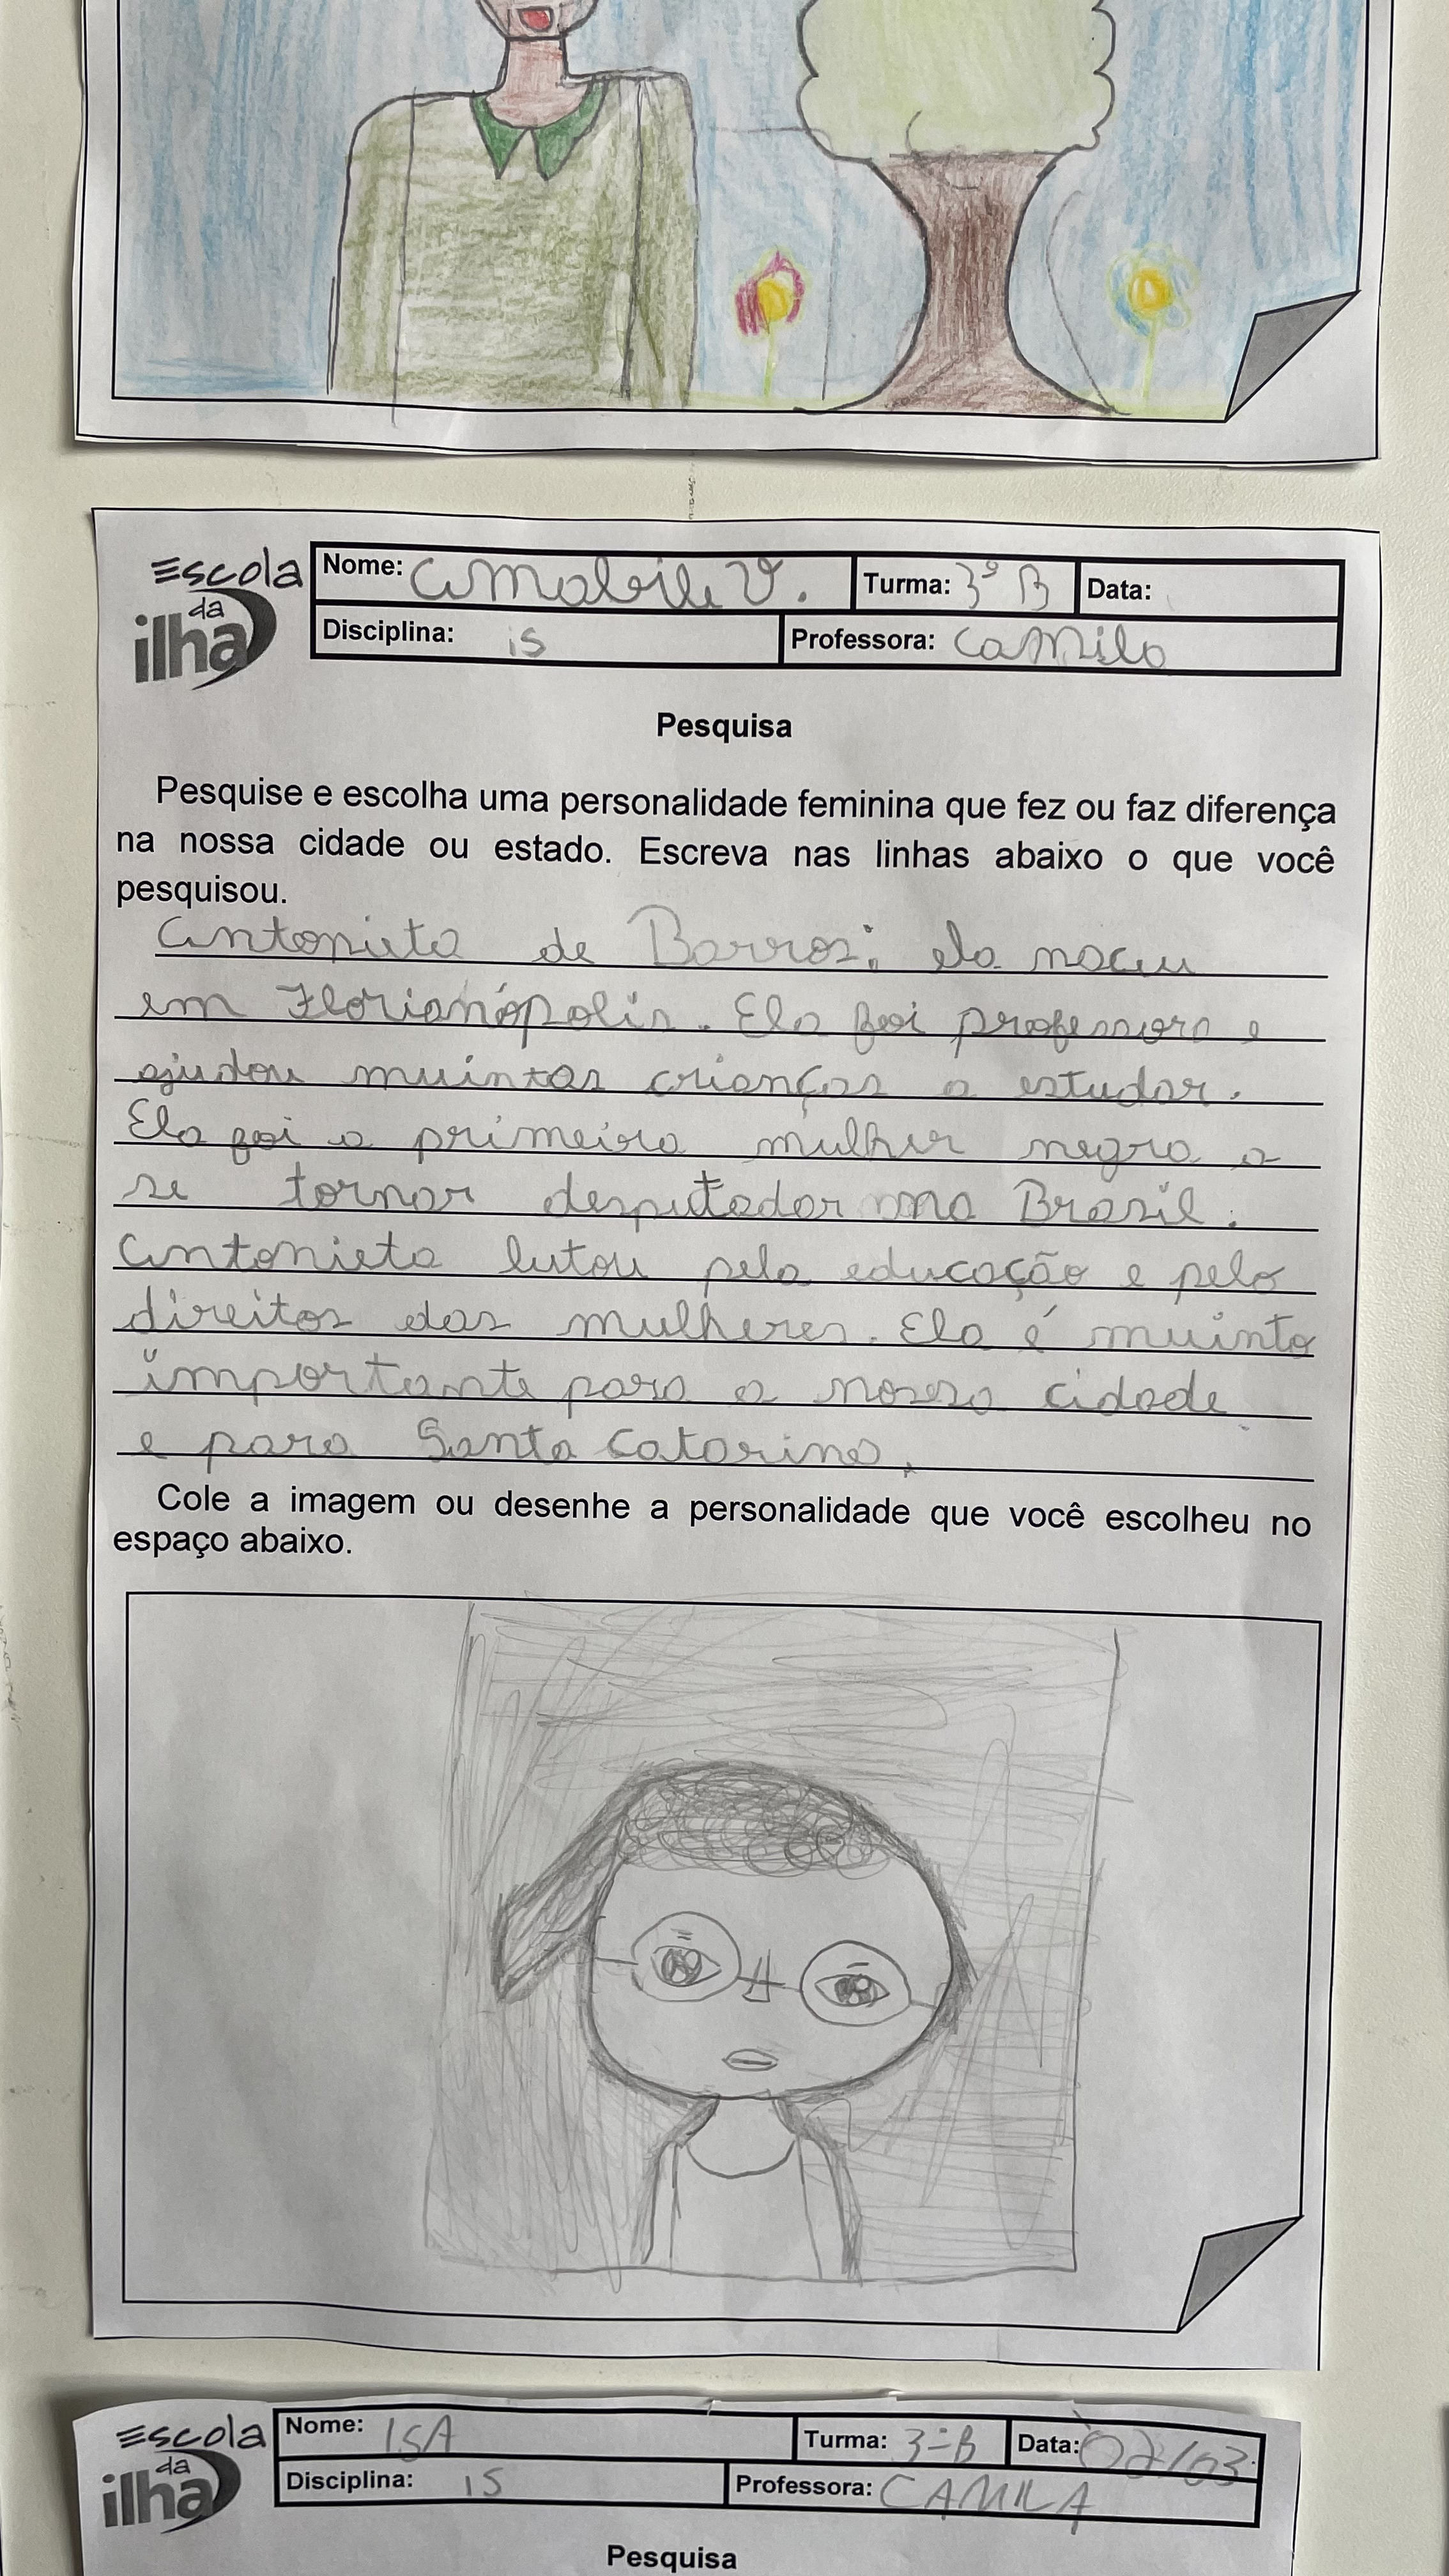 Escola da ilha
Nome: Amabile V. Turma: 3º B Data:
Disciplina: is Professora: Camila
Pesquisa
Pesquise e escolha uma personalidade feminina que fez ou faz diferença
na nossa cidade ou estado. Escreva nas linhas abaixo o que você
pesquisou.
Antonieta de Barros: ela naceu
em Florianópolis. Ela foi professora e
ajudou muintas crianças a estudar.
Ela foi a primeira mulher negra a
se tornar desputador no Brasil.
Antonieta lutou pela educação e pelo
direitos das mulheres. Ela é muinto
importante para a nossa cidade
e para Santa Catarina.
Cole a imagem ou desenhe a personalidade que você escolheu no
espaço abaixo.
Escola da ilha
Nome: ISA Turma: 3º B Data: 02/03
Disciplina: IS Professora: CAMILA
Pesquisa